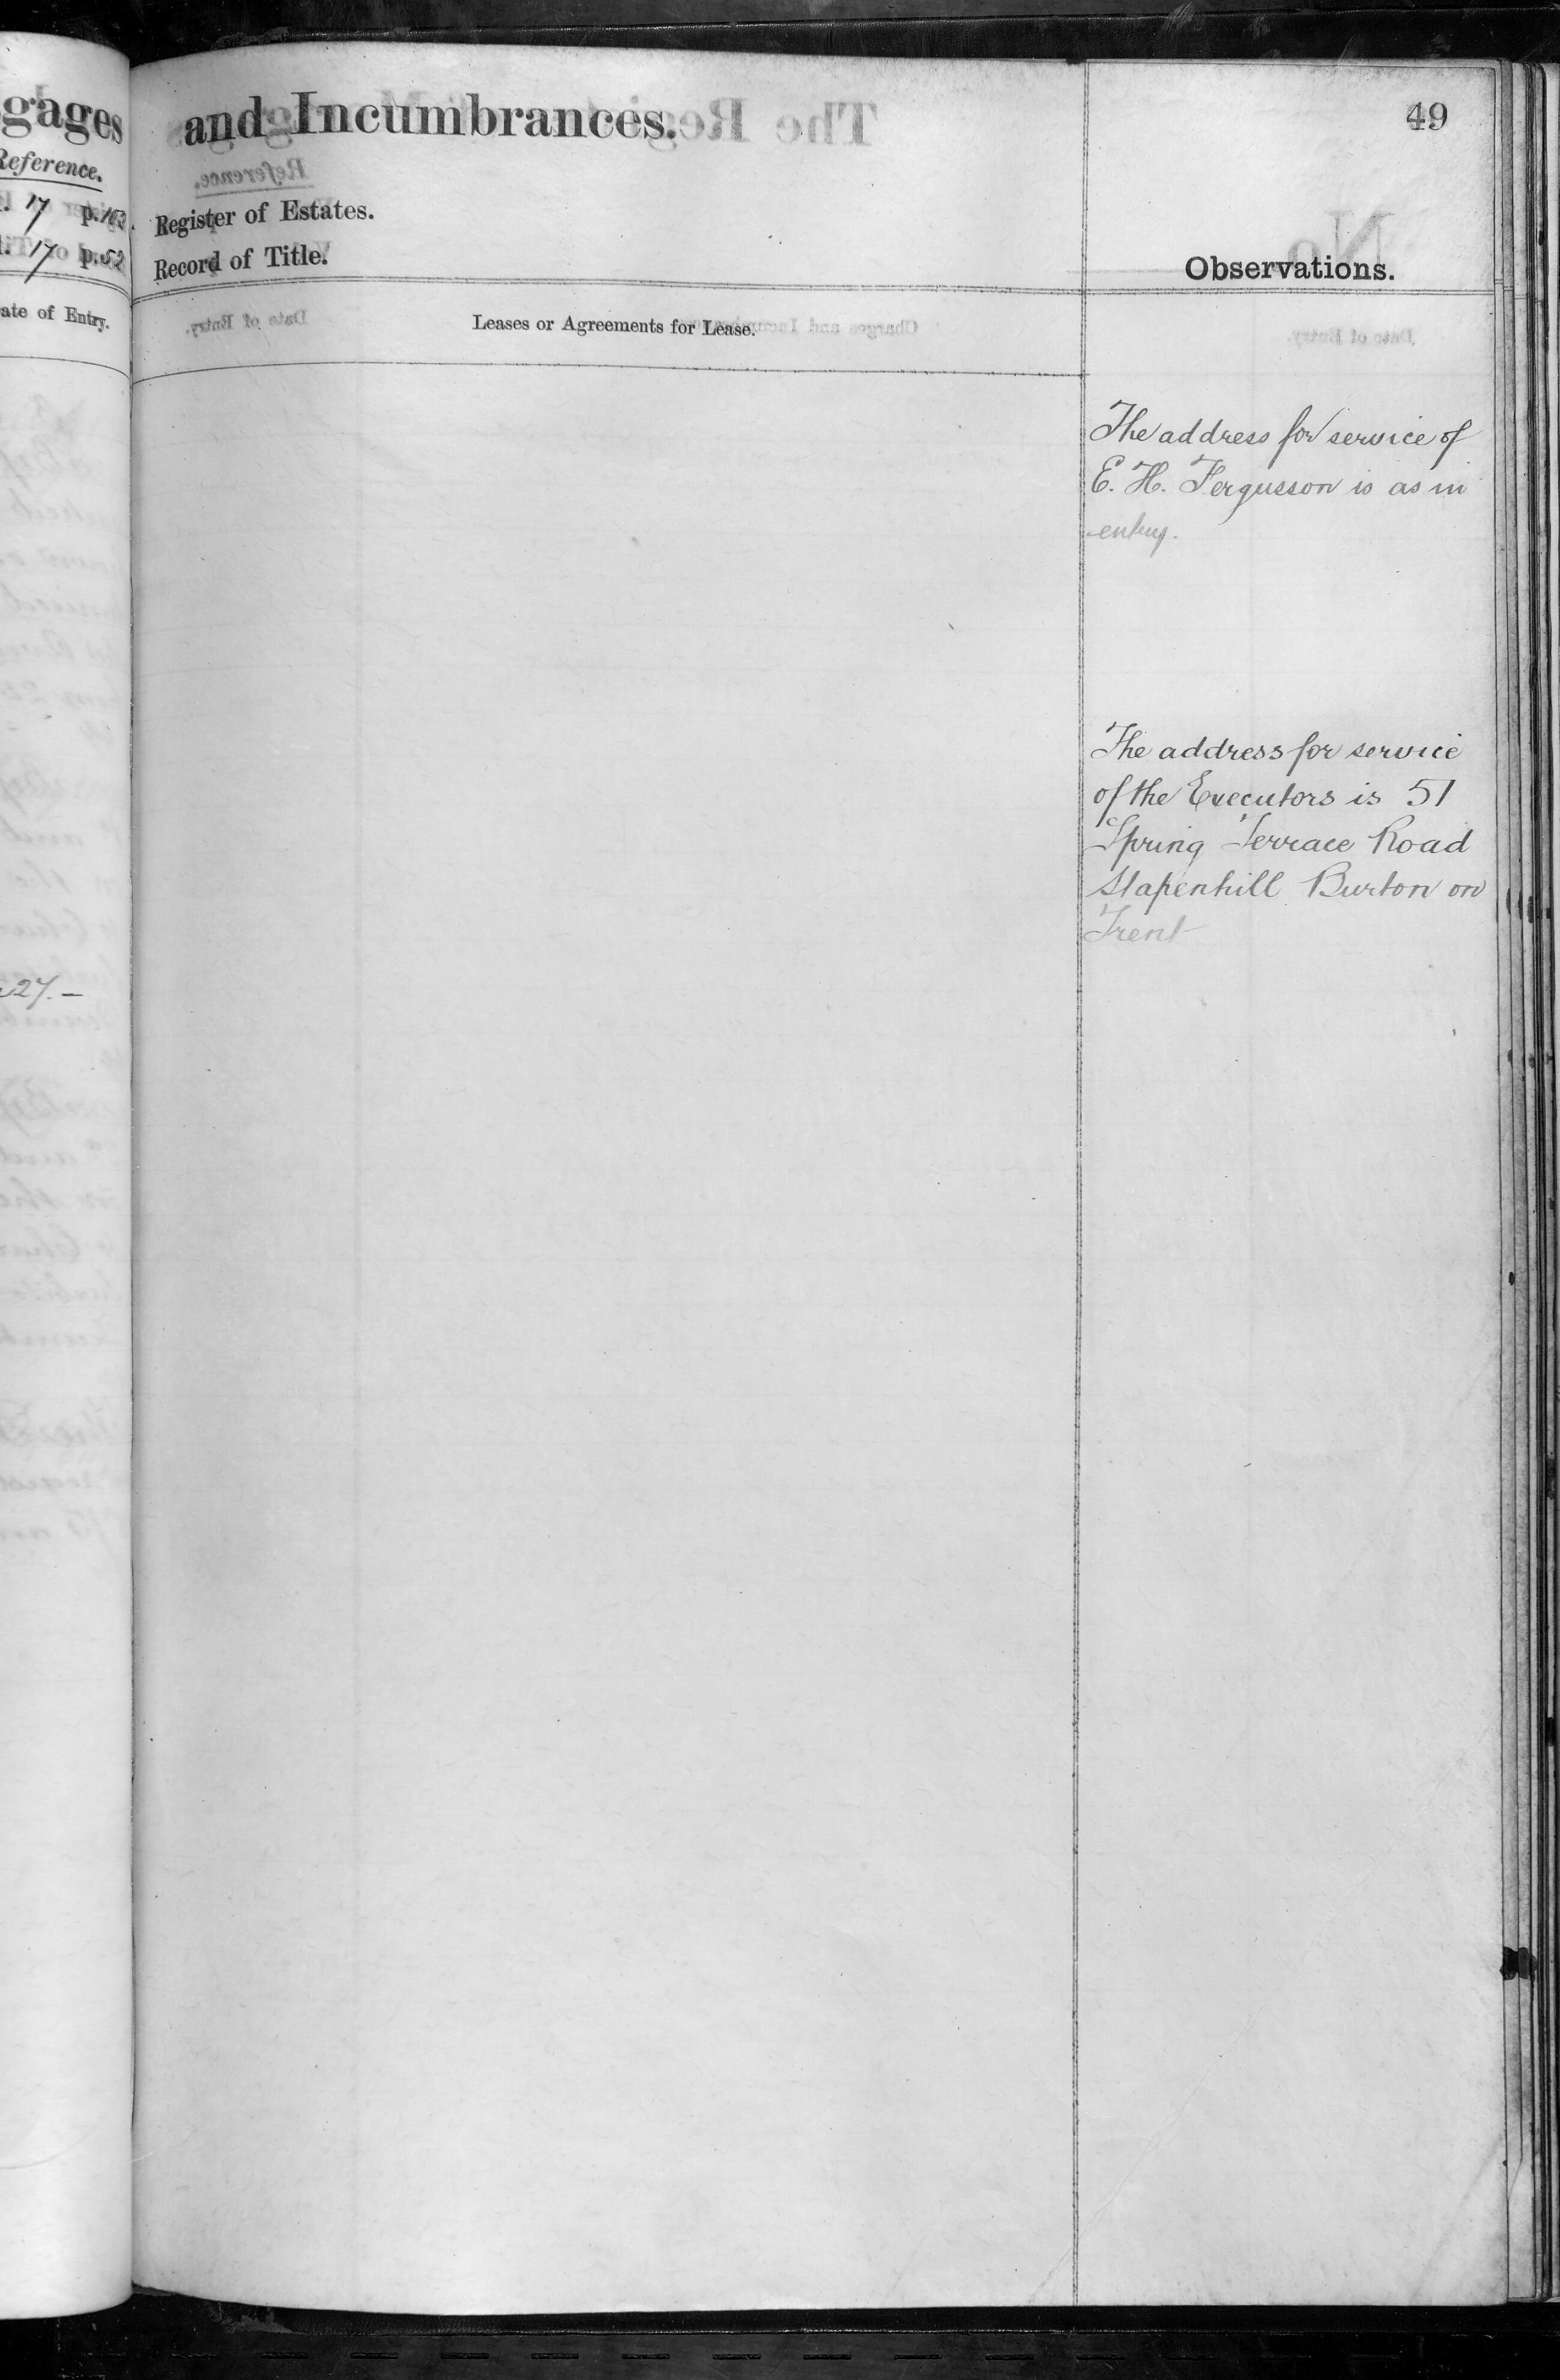 gages
Reference.
17 p.
17 p. 52
ate of Entry.
27. –
and Incumbrances.
49
Register of Estates.
Record of Title.
Observations.
Leases or Agreements for Lease.
The address for service of
E. H. Fergusson is as in
entry.
The address for service
of the Executors is 51
Spring Terrace Road
Stapenhill Burton on
Trent